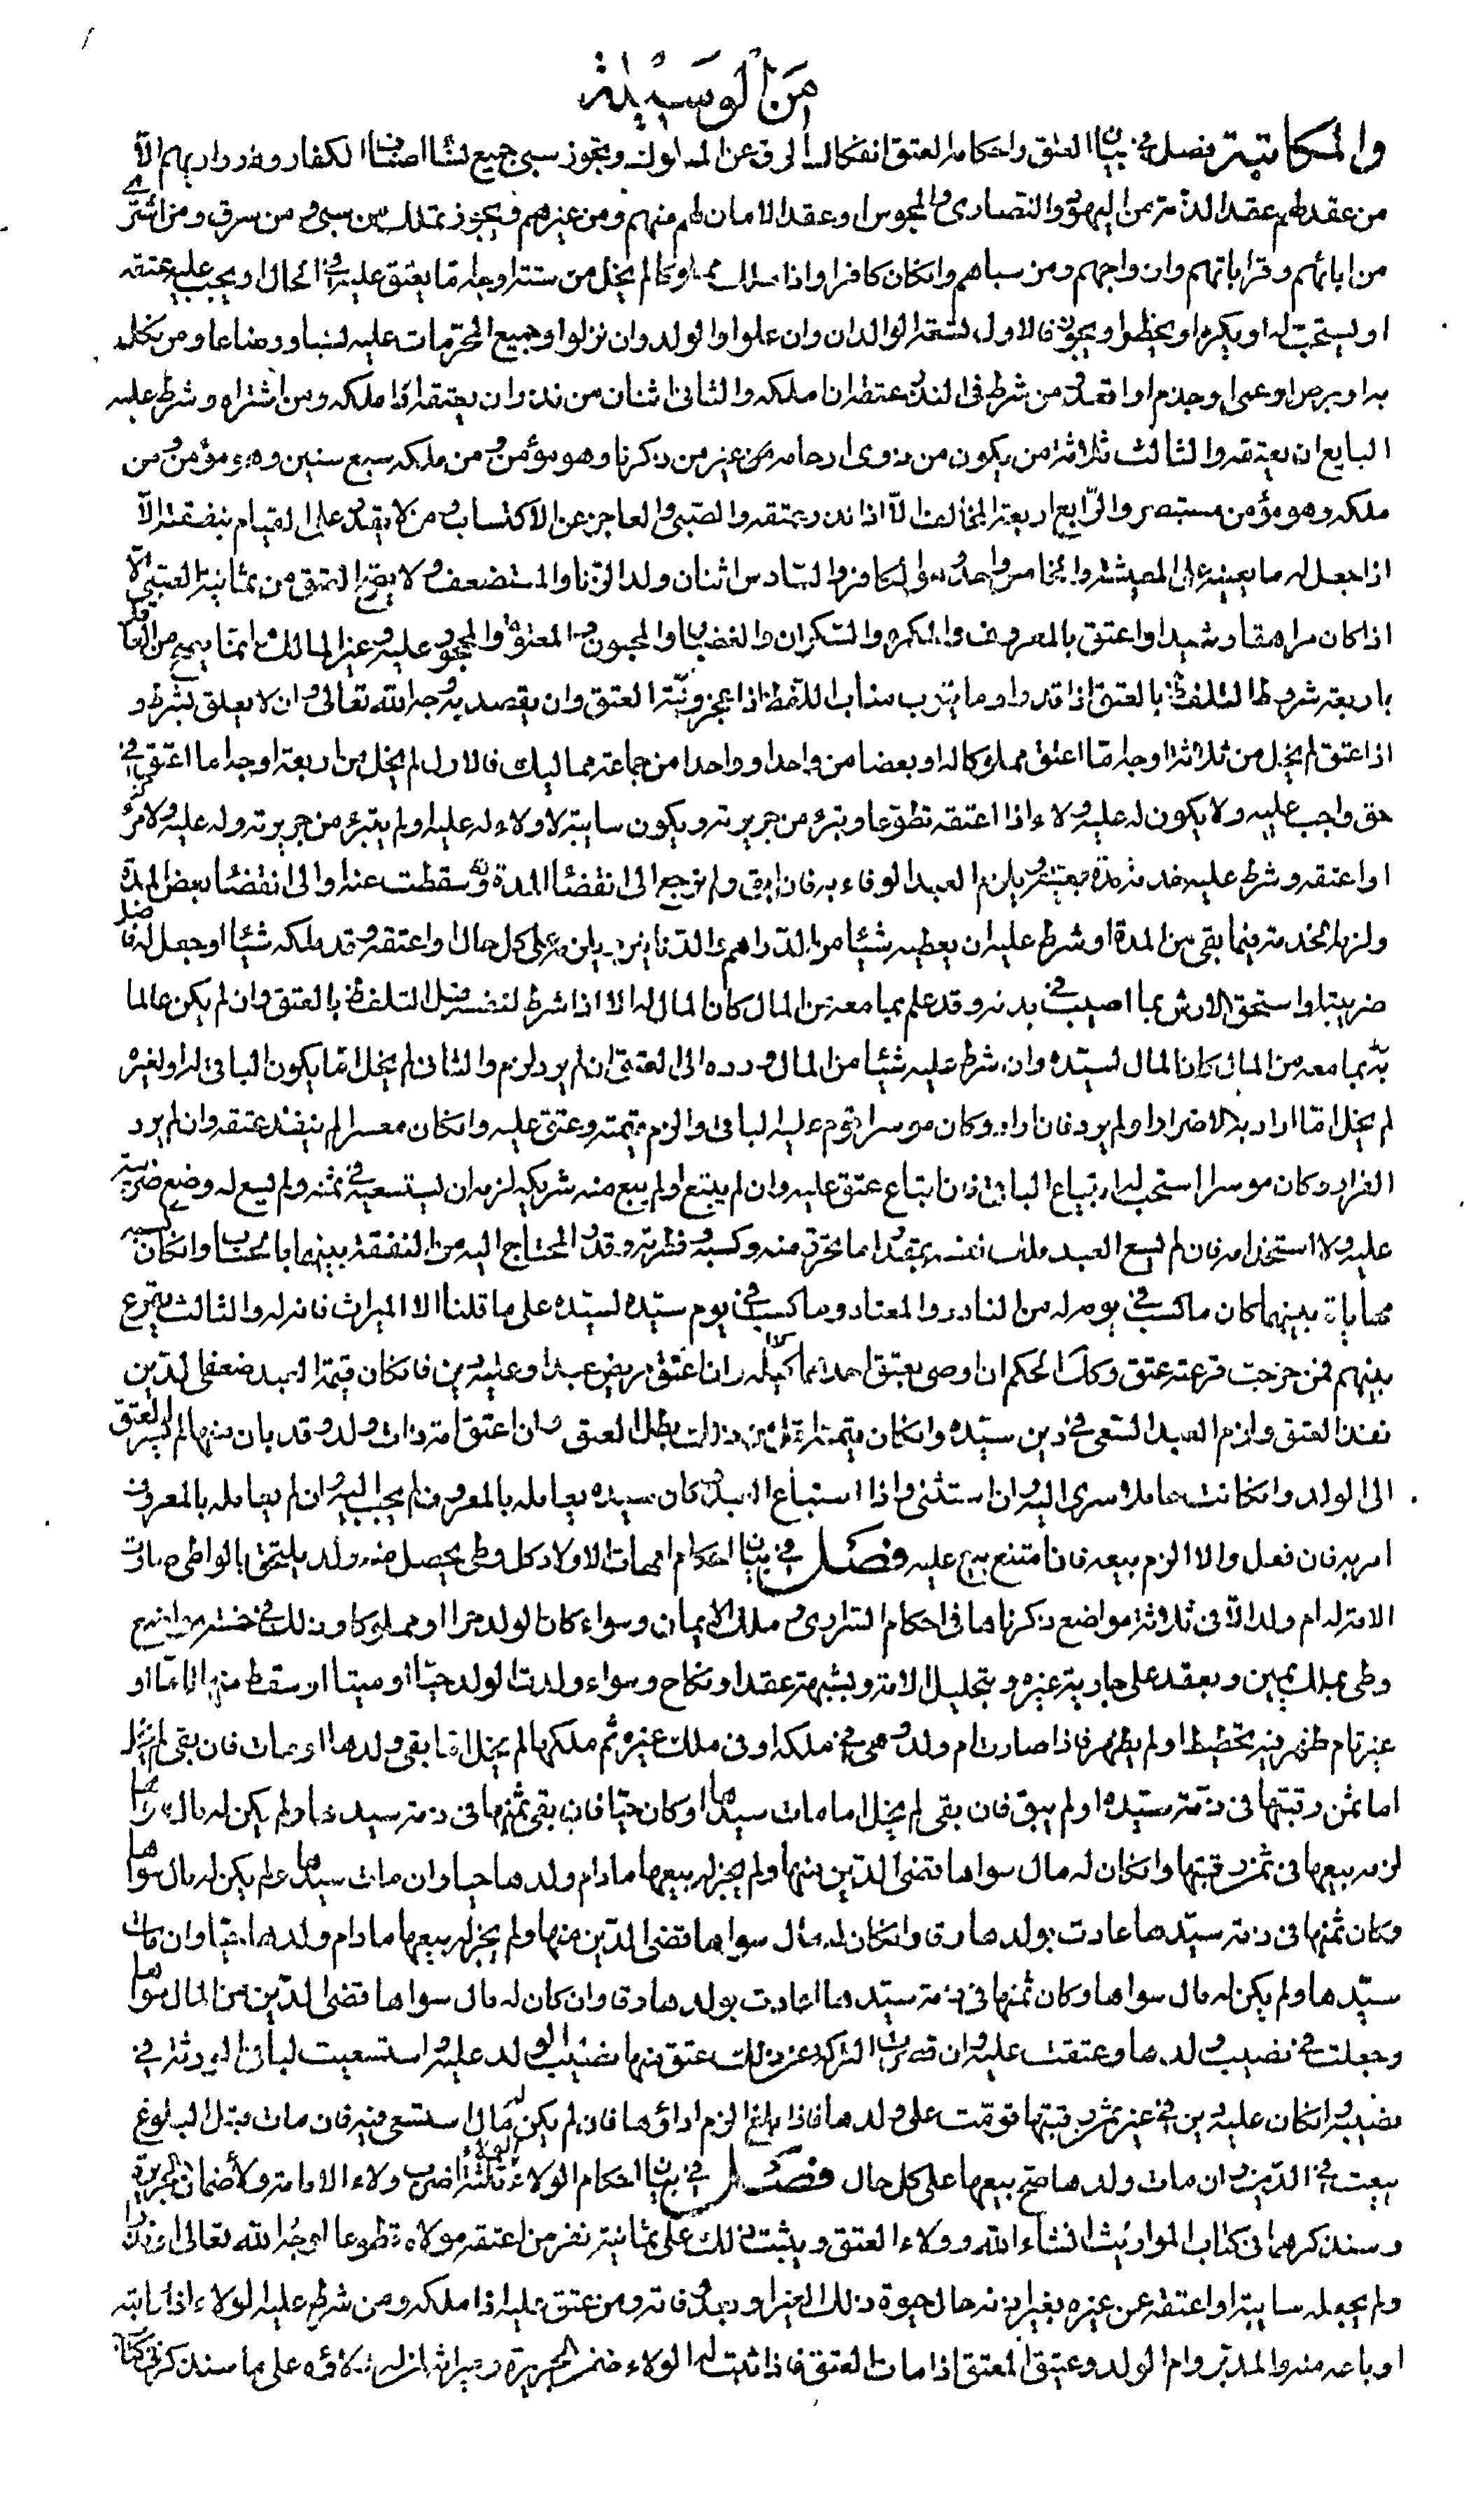 من الوسيلة
والمكاتبة فصل في بيان العتق واحكامه العتق انفكاك الرق عن المملوك ويجوز سبي جميع نساء اصناف الكفار وذراريهم الا
من عقد لهم عقد الذمة من اليهود والنصارى والمجوس او عقد الامان لهم منهم ومن غيرهم فيجوز تملك من سبي و من سرق و من اشترى
من ابائهم وقراباتهم وازواجهم ومن سباهم وان كان كافرا واذا ملك مملوكا لم يخل من ستة اوجه اما يعتق عليه في الحال او يجب عليه عتقه
او يستحب له او يكره او يحظر او يجوز فالاول تسعة الوالدان وان علوا والولد وان نزلوا وجميع المحرمات عليه نسبا ورضاعا ومن نكل
به او برص او عمى او جذم او اقعد من شرط في النذر عتقه ان ملكه والثاني اثنان من نذر ان يعتقه اذا ملكه ومن اشتراه وشرط عليه
البايع ان يعتقه والثالث ثلاثة من يكون من ذوى ارحامه من غير من ذكرنا وهو مؤمن و من ملكه سبع سنين وهو مؤمن و من
ملكه وهو مؤمن مستبصر والرابع اربعة المخالف الا اذا نذر بعتقه والصبي والعاجز عن الاكتساب و من لا يقدر على القيام بنفقته الا
اذا جعل له ما يعينه على المعيشة والخامس واحد وهو الكافر والسادس اثنان ولد الزنا والمستضعف ولا يقع العتق من ثمانية الصبي الا
اذا كان مراهقا رشيدا واعتق بالمعروف والمكره والسكران والغضبان والمجنون والمعتوه والمحجور عليه وغير المالك وانما يصح من العاقل
باربعة شروط التلفظ بالعتق اذا قدر او ما ينوب مناب اللفظ اذا عجز ونية العتق وان يقصد به وجه الله تعالى وان لا يعلق بشرط و
اذا عتق لم يخل من ثلاثة اوجه اما اعتق مملوكا له او بعضا من واحد او واحدا من جماعة مماليك فالاول لم يخل من اربعة اوجه اما اعتق في
حق واجب عليه ولا يكون له عليه ولاء او اذا اعتقه تطوعا وتبرء من جريرته ويكون سايبة لا ولاء له عليه او لم يتبرء من جريرته وله عليه ولاء
او اعتقه وشرط عليه خدمة مدة معينة يلزم العبد الوفاء به فان ابق ولم يرجع الى انقضاء المدة سقطت عنه او الى انقضاء بعض المدة
ولزمه الخدمة فيما بقي من المدة او شرط عليه ان يعطيه شيئا من الدراهم والدنانير يلزمه على كل حال واعتقه وقد ملكه شيئا او جعل له فاضل
ضريبته او استحق الارش بما اصيب في بدنه وقد علم بما معه من المال كان المال له الا اذا شرط لنفسه قبل التلفظ بالعتق وان لم يكن عالما
بما معه من المال كان المال لسيده وان شرط عليه شيئا من المال ورده الى العتق ان لم يرد لزم والثاني لم يخل اما يكون الباقي له او لغيره
لم يخل اما اراد به الاضرار او لم يرد فان اراد وكان موسرا قوم عليه الباقي والزم قيمته وعتق عليه وان كان معسرا لم ينفذ عتقه وان لم يرد
الضرار وكان موسرا استحب له ابتياع الباقي فان ابتاع عتق عليه وان لم يبتع ولم يبع منه شريكه لزمه ان يستسعيه في ثمنه ولم يسع له وضع ضريبة
عليه ولا استخدامه فان لم يسع العبد ملك نفسه بمقدار ما تحرر منه وكسبه و فطرته وقدر المحتاج اليه من النفقة بينهما بالحساب وان كان
مهاياة بينهما كان ما كسب في يومه له من النادر والمعتاد وما كسب في يوم سيده لسيده على ما قلنا الا الميراث فانه له والثالث يقرع
بينهم فمن خرجت قرعته عتق وكذلك الحكم ان اوصى بعتق احد مماليكه وان اعتق مريض عبدا وعليه دين فان كان قيمة العبد ضعفي الدين
نفذ العتق ولزم العبد السعي في دين سيده وان كان قيمته اقل من ذلك بطل العتق وان اعتق امة ذات ولد وقد بان منها لم يسر العتق
الى الولد وان كانت حاملا سرى اليه وان استثنى واذا استباع العبد وكان سيده يعامله بالمعروف لم يجب اليه وان لم يعامله بالمعروف
امر به فان فعل والا الزم بيعه فان امتنع بيع عليه فصل في بيان احكام امهات الاولاد كل وطى يحصل منه ولد يلتحق بالواطى صارت
الامة له ام ولد الا في ثلاثة مواضع ذكرناها في احكام السرارى و ملك الايمان وسواء كان الولد حرا او مملوكا وذلك في خمسة مواضع
وطى بملك يمين وبعقد على جارية غيره وبتحليل الامة وبشبهة عقد او نكاح وسواء ولدت الولد حيا او ميتا او سقط منها تاما او
غير تام ظهر فيه تخطيط او لم يظهر فاذا صارت ام ولد وهي في ملكه او في ملك غيره ثم ملكها لم يخل اما بقي ولدها او مات فان بقي لم يخل
اما ثمن رقبتها في ذمة سيده او لم يبق فان بقي لم يخل اما مات سيدها او كان حيا فان بقي ثمنها في ذمة سيدها ولم يكن له مال سواها
لزمه بيعها في ثمن رقبتها وان كان له مال سواها قضى الدين منها ولم يجز له بيعها مادام ولدها حيا وان مات سيدها ولم يكن له مال سواها
وكان ثمنها في ذمة سيدها عادت بولدها رقا وان كان له مال سواها قضى الدين منها ولم يجز له بيعها مادام ولدها حيا وان مات
سيدها ولم يكن له مال سواها وكان ثمنها في ذمة سيدها عادت بولدها رقا وان كان له مال سواها قضى الدين من المال سواها
وجعلت في نصيب ولدها وعتقت عليه وان قصرت التركة عن ذلك عتق منها نصيب الولد عليه و استسعيت لباقي الورثة في
نصيبه وان كان عليه دين في غير ثمن رقبتها قومت على ولدها فاذا بلغ الزم اداؤها فان لم يكن له مال استسعى فيه فان مات قبل البلوغ
بيعت في الدين وان مات ولدها صح بيعها على كل حال فصل في بيان احكام الولاء الولاء ثلثة اضرب ولاء الامامة ولاء ضمان الجريرة
وسنذكرهما في كتاب المواريث انشاء الله وولاء العتق ويثبت ذلك على ثمانية نفر من اعتقه مولاه تطوعا لوجه الله تعالى
ولم يجعله سايبة او اعتقه عن غيره بغير اذنه حال حيوة ذلك الغير او بعد وفاته ومن عتق عليه اذا ملكه ومن شرط عليه الولاء اذا كاتبه
او باعه منه والمدبر وام الولد وعتيق المعتق اذا مات المعتق فاذا ثبت له الولاء ضمن الجريرة وميراثه له على ما سنذكر في كتاب